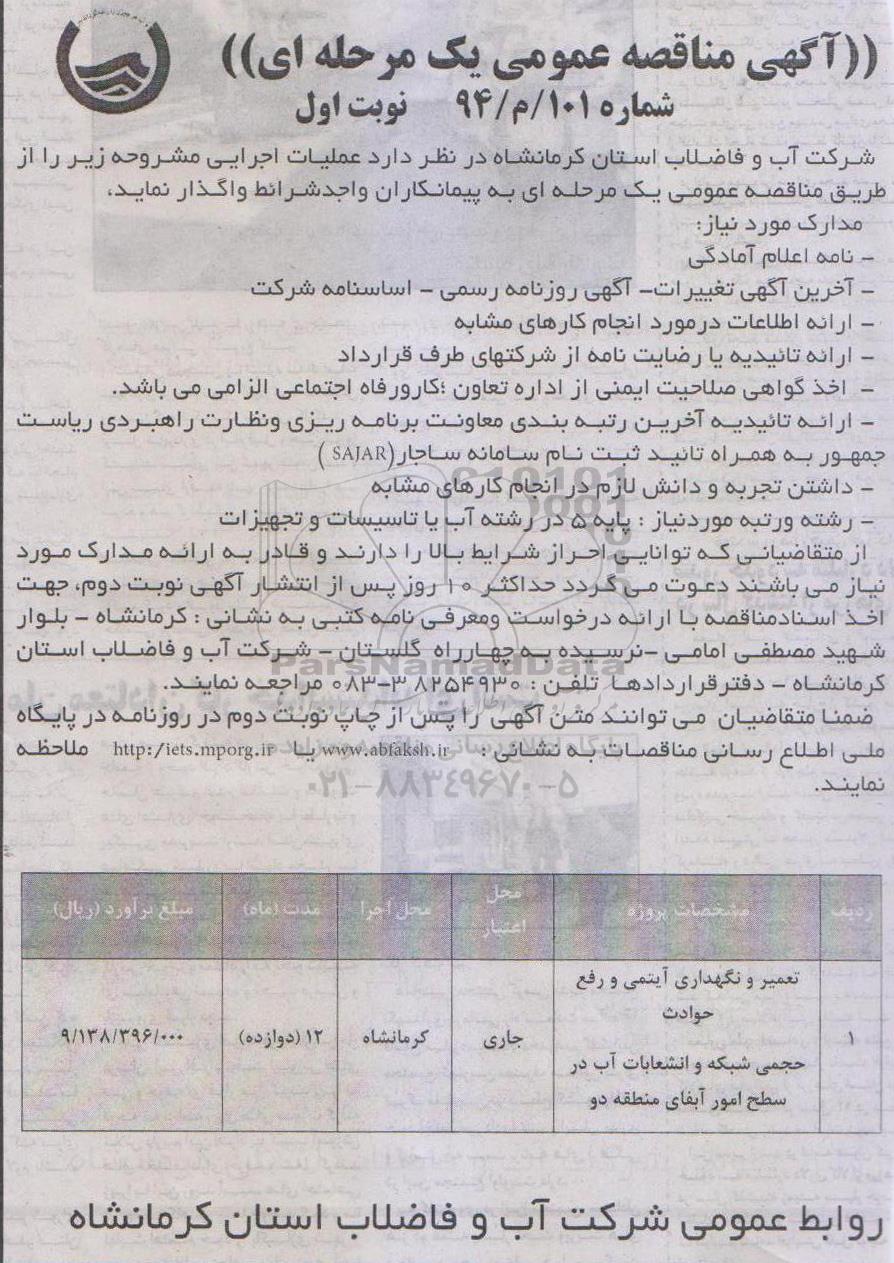 ((آگهی مناقصه عمومی یک مرحله ای))
شماره ۱۰۱/م/۹۴ نوبت اول
شرکت آب و فاضلاب استان کرمانشاه در نظر دارد عملیات اجرایی مشروحه زیر را از
طریق مناقصه عمومی یک مرحله ای به پیمانکاران واجدشرائط واگذار نماید،
مدارک مورد نیاز:
- نامه اعلام آمادگی
- آخرین آگهی تغییرات- آگهی روزنامه رسمی - اساسنامه شرکت
- ارائه اطلاعات درمورد انجام کارهای مشابه
- ارائه تائیدیه یا رضایت نامه از شرکتهای طرف قرارداد
- اخذ گواهی صلاحیت ایمنی از اداره تعاون ؛کارورفاه اجتماعی الزامی می باشد.
- ارائه تائیدیه آخرین رتبه بندی معاونت برنامه ریزی ونظارت راهبردی ریاست
جمهور به همراه تائید ثبت نام سامانه ساجار(SAJAR )
- داشتن تجربه و دانش لازم در انجام کارهای مشابه
- رشته ورتبه موردنیاز : پایه ۵ در رشته آب یا تاسیسات و تجهیزات
از متقاضیانی که توانایی احراز شرایط بالا را دارند و قادر به ارائه مدارک مورد
نیاز می باشند دعوت می گردد حداکثر ۱۰ روز پس از انتشار آگهی نوبت دوم، جهت
اخذ اسنادمناقصه با ارائه درخواست ومعرفی نامه کتبی به نشانی : کرمانشاه - بلوار
شهید مصطفی امامی -نرسیده به چهارراه گلستان - شرکت آب و فاضلاب استان
کرمانشاه - دفترقراردادها تلفن : ۳۸۲۵۴۹۳۰-۰۸۳ مراجعه نمایند.
ضمنا متقاضیان می توانند متن آگهی را پس از چاپ نوبت دوم در روزنامه در پایگاه
ملی اطلاع رسانی مناقصات به نشانی : www.abfaksh.ir یا http:/iets.mporg.ir ملاحظه
نمایند.
ParsNamadData
۰۲۱-۸۸۳۴۹۶۷۰-۵
ردیف مشخصات پروژه محل اعتبار محل اجرا مدت (ماه) مبلغ برآورد (ریال)
۱ تعمیر و نگهداری آیتمی و رفع
حوادث
حجمی شبکه و انشعابات آب در
سطح امور آبفای منطقه دو
جاری کرمانشاه ۱۲ (دوازده) ۹/۱۳۸/۳۹۶/۰۰۰
روابط عمومی شرکت آب و فاضلاب استان کرمانشاه